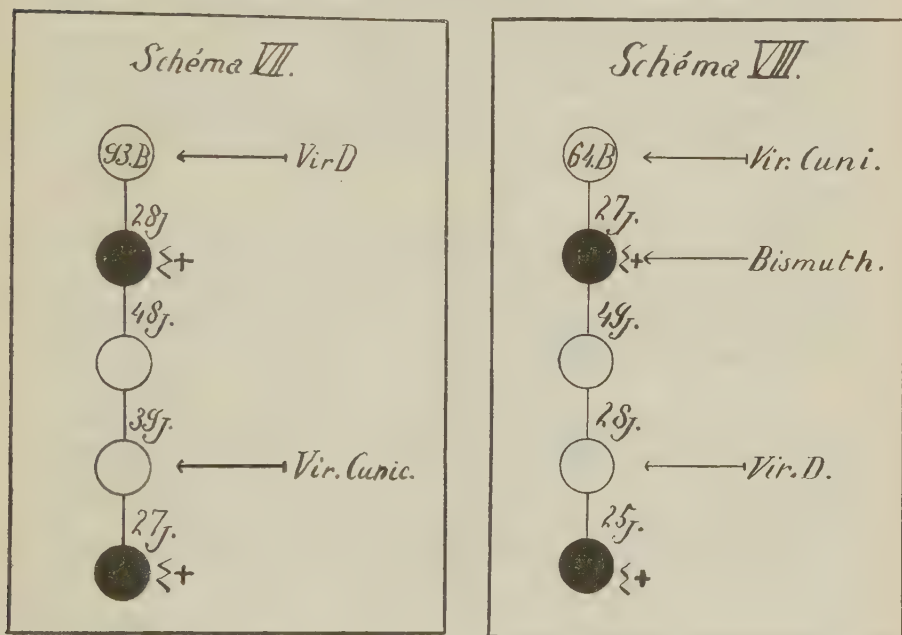 Schéma VII.
93.B Vir D
28J
ξ+
48J.
39J.
Vir. Cunic.
27J.
ξ+
Schéma VIII.
64.B Vir. Cuni.
27J.
ξ+ Bismuth.
49J.
28J.
Vir. D.
25J.
ξ+